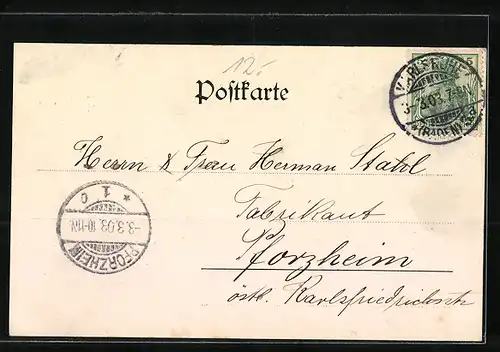 12.-
Postkarte
KARLSRUHE
5
3.3.03. 7-8
*(BADEN)
Herrn & Frau Herman Stahl
Fabrikant
Pforzheim
östl. Karlsfriedrichstr
PFORZHEIM
-3.3.03. 10-11N.
* 1 c